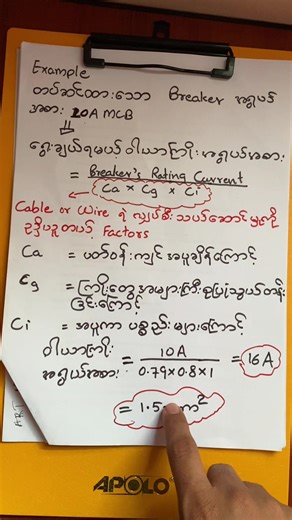 Example
တပ်ဆင်ထားသော Breaker အရွယ်
အစား 10A MCB
ရွေးချယ်ရမယ့် ဝါယာကြိုး အရွယ်အစား
= Breaker's Rating Current
Ca × Cg × Ci
Cable or Wire ရဲ့ လျှပ်စီး သယ်ဆောင်မှုကို
Factors
Ca = ပတ်ဝန်းကျင် အပူချိန်ကြောင့်
Cg = ကြိုးတွေ အများကြီး စုပြုံသွယ်တန်း
ခြင်းကြောင့်
Ci = အပူကာ ပစ္စည်းများကြောင့်
ဝါယာကြိုး
အရွယ်အစား = 10A
0.79×0.8×1 = 16A
= 1.5
APOLO